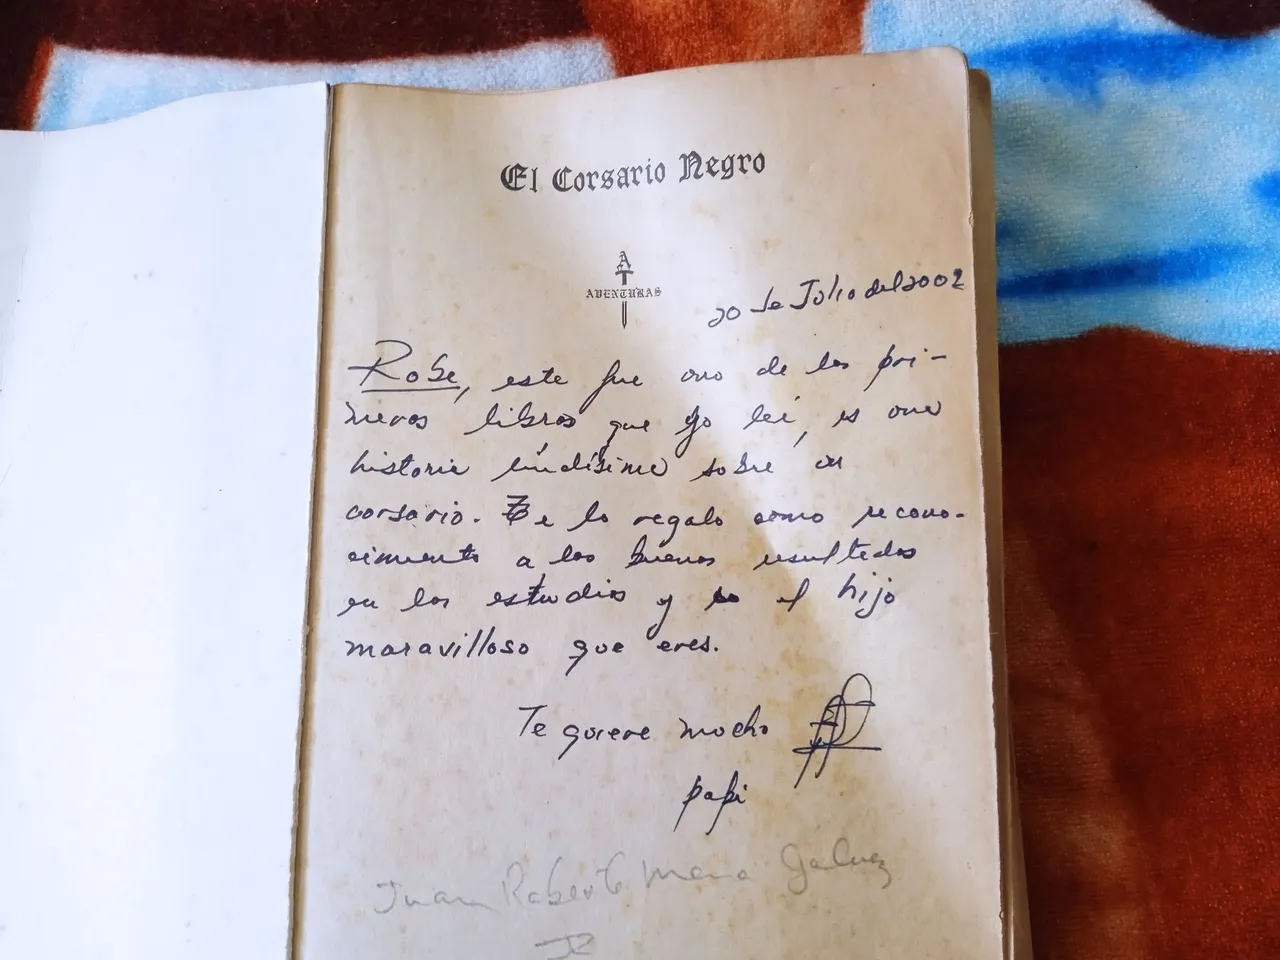 El Corsario Negro
AT
AVENTURAS
20 de Julio del 2002
Robe, este fue uno de los pri-
meros libros que yo leí, es una
historia lindísima sobre un
corsario. Te lo regalo como recono-
cimiento a los buenos resultados
en los estudios y el hijo
maravilloso que eres.
Te quiere mucho
papi
Juan Roberto Galvez